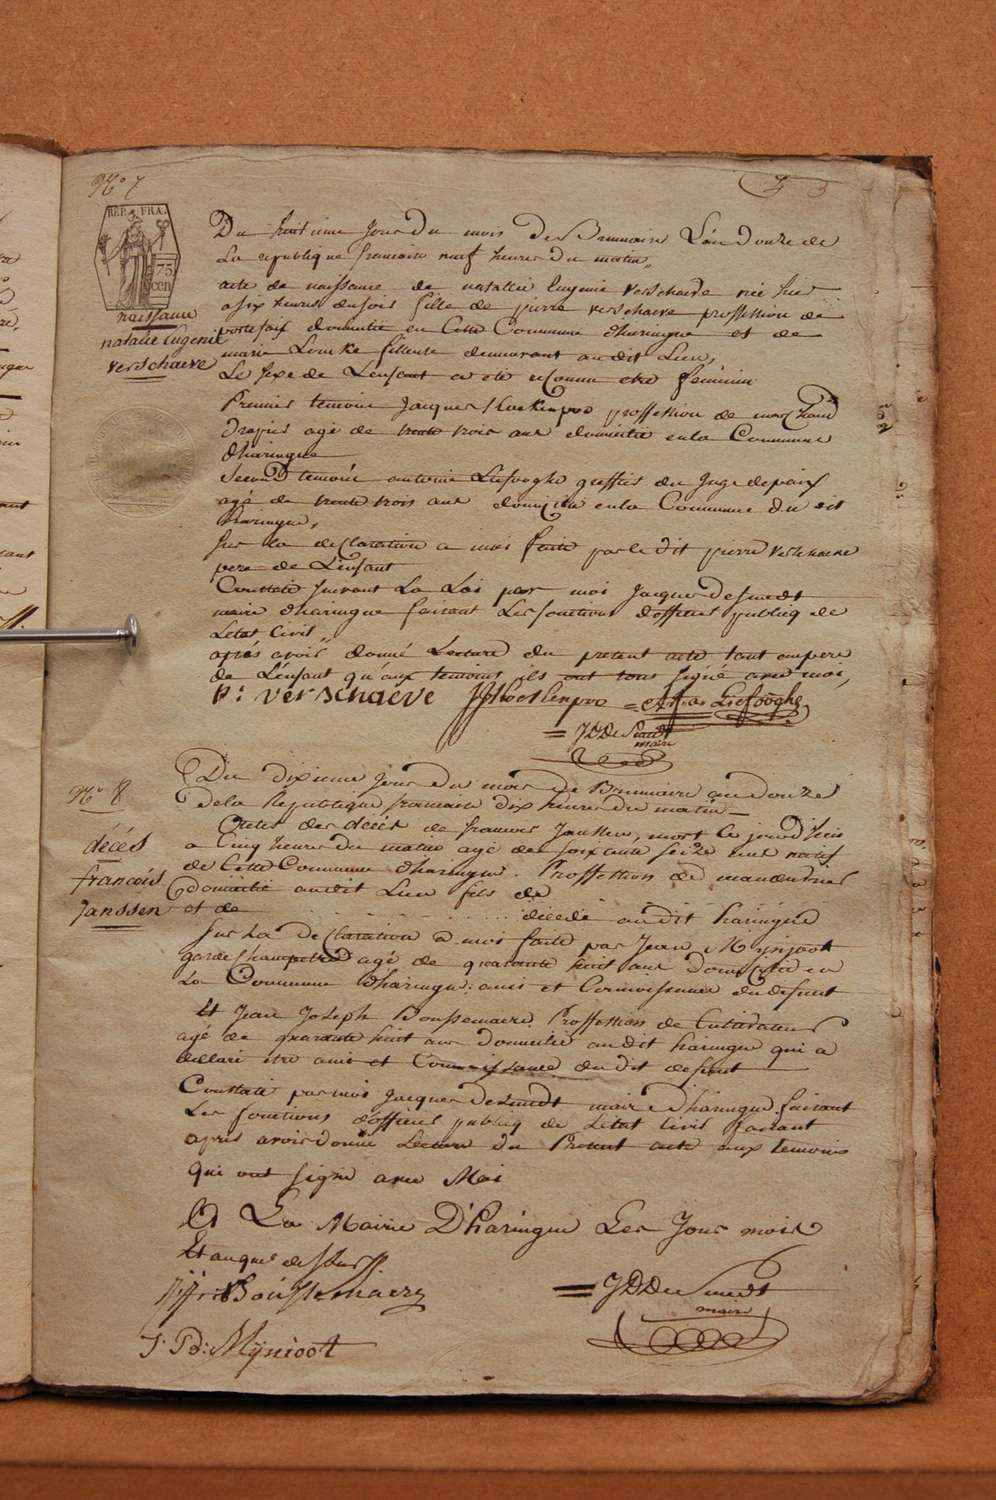 No 7
3
REP. FRA.
75
cen
naissance
natalie Eugenie
verschaeve
Du huitieme Jour du mois De Brumaire L'an Douze de
La republique francaise neuf heures Du matin,,
acte de naissance de natallie Eugenie verschaeve née hier
a six heures du soir fille de pierre verschaeve proffession de
portefaix domicilié en Cette Commune dharingue et de
marie fileuse demeurant au dit Lieu,
Le sexe de L'enfant a eté reConnu etre feminin
Premier temoin Jacques proffession de marChand
Drapier agé de trente trois ans domicilié en la Commune
dharingue
Second temoin antoine Liefooghe greffier du Juge de paix
agé de trente trois ans domicilié en la Commune du dit
haringue,
Sur la deClaration a moi faite par le dit pierre verschaeve
pere de L'enfant
Constaté suivant La Loi par moi Jacques desmedt
maire dharingue faisant Les fonctions dofficier publiq de
Létat Civil,,
aprés avoir donné Lecture du present acte tant au pere
de L'enfant qu'aux temoins ils ont tous signé avec moi,
P: verschaeve = Liefooghe
= JDDeSmedt
maire
No 8
décés
francois
Janssen
Du dixieme Jour du mois de Brumaire an douze
de la République francaise dix heures du matin
Acte de décés de francois Janssen, mort Ce jourd'huis
a Cinq heures du matin agé de soixante seize ans natif
de Cette Commune dharingue. Proffession de manoeuvrier
domicilié au dit Lieu fils de
et de ........ décédé au dit haringue
Sur La DeClaration a moi faite par Jean Mynjoot
garde champettre agé de quarante huit ans DomiCilié en
La Commune dharingue: ami et Connoissance du defunt
Et Jean Joseph Boussemaere Proffession de Cutivateur
agé de quarante huit ans Domicilié au dit haringue qui a
déClaré étre ami et Connoissance du Dit defunt
Constaté par moi Jacques Desmedt maire Dharingue faisant
Les fonctions dofficier publiq de Létat Civil
aprés avoir donné Lecture du Present acte aux temoins
qui ont signé avec Moi
A La Mairie D'haringue Les Jour mois
Et an que dessus
Boussemaere
= JDDeSmedt
maire
Mÿnioot